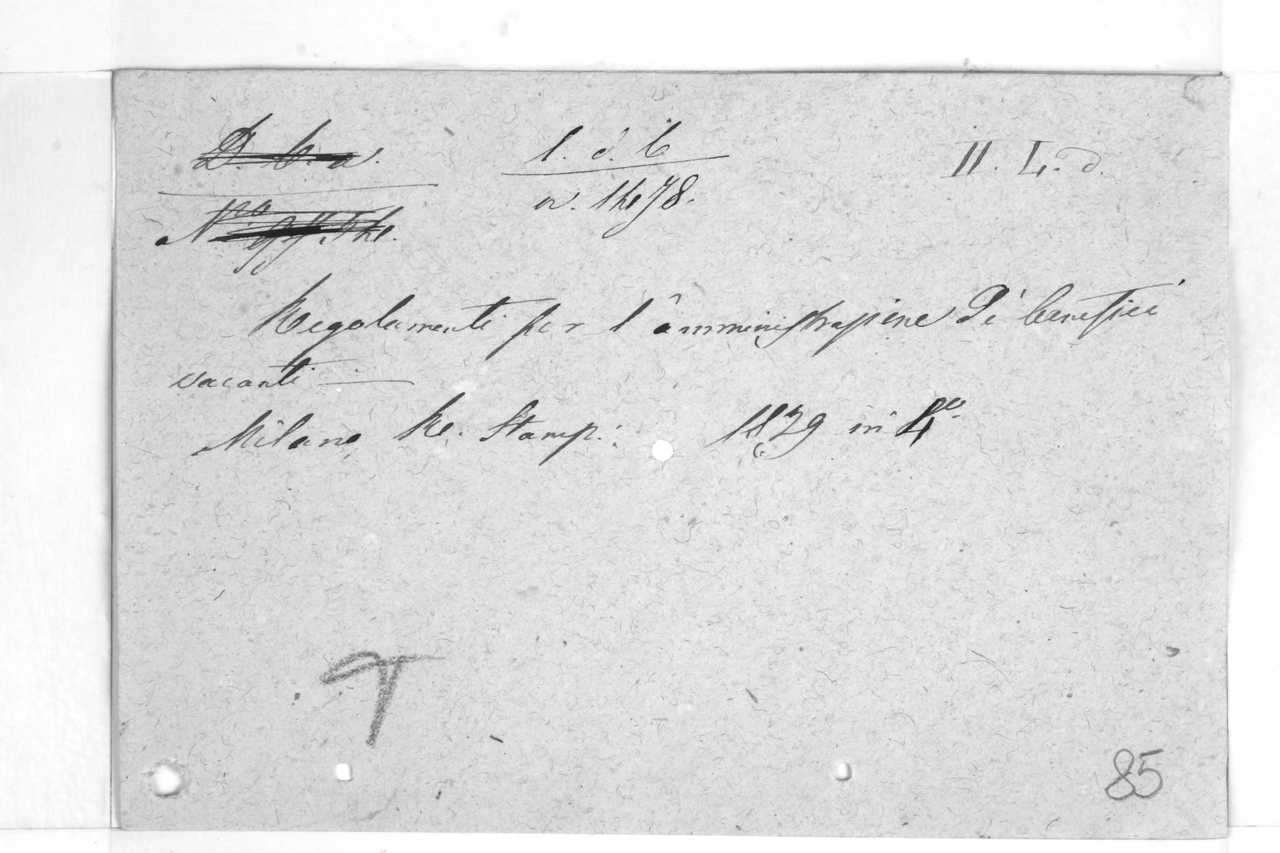 l. d. b II. L. d.
n.
Regolamenti per l'amministrazione di benefici
vacanti —
Milano, Re. Stamp.: 1829 in 4to
T
85